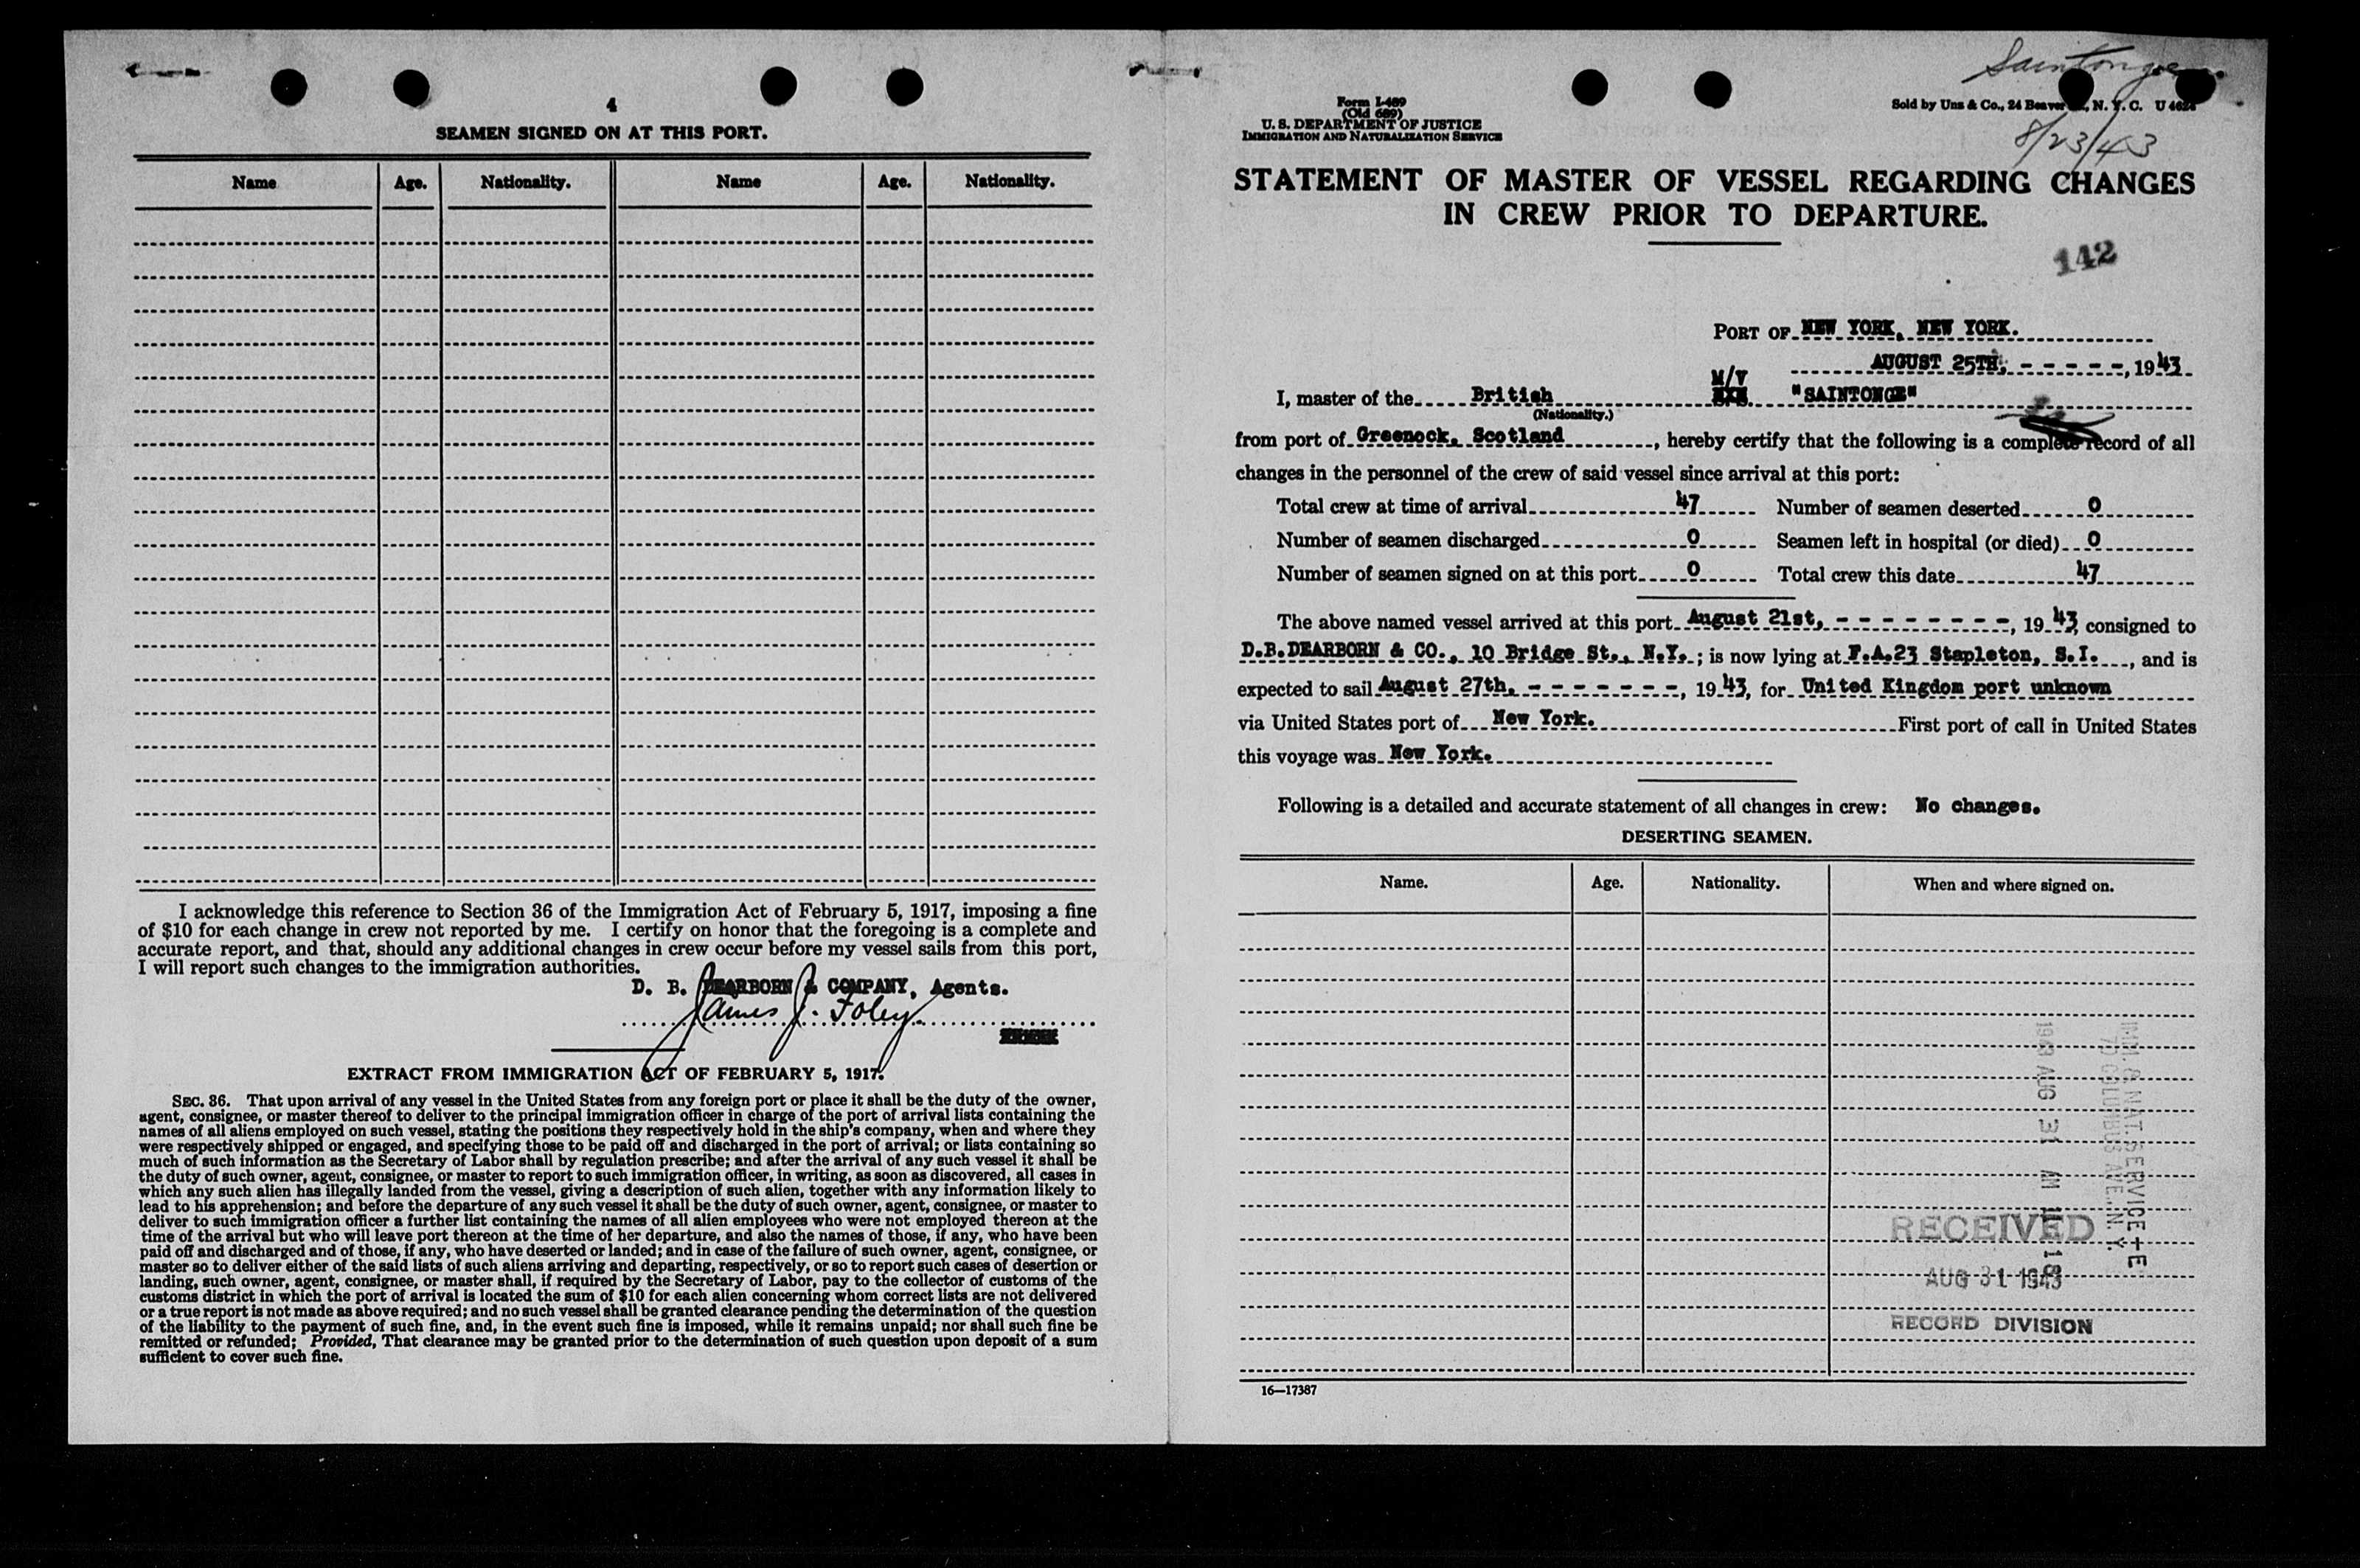 4
SEAMEN SIGNED ON AT THIS PORT.
Name Age. Nationality. Name Age. Nationality.
I acknowledge this reference to Section 36 of the Immigration Act of February 5, 1917, imposing a fine
of $10 for each change in crew not reported by me. I certify on honor that the foregoing is a complete and
accurate report, and that, should any additional changes in crew occur before my vessel sails from this port,
I will report such changes to the immigration authorities.
D. B. DEARBORN & COMPANY, Agents.
James J. Foley.
EXTRACT FROM IMMIGRATION ACT OF FEBRUARY 5, 1917.
SEC. 36. That upon arrival of any vessel in the United States from any foreign port or place it shall be the duty of the owner,
agent, consignee, or master thereof to deliver to the principal immigration officer in charge of the port of arrival lists containing the
names of all aliens employed on such vessel, stating the positions they respectively hold in the ship's company, when and where they
were respectively shipped or engaged, and specifying those to be paid off and discharged in the port of arrival; or lists containing so
much of such information as the Secretary of Labor shall by regulation prescribe; and after the arrival of any such vessel it shall be
the duty of such owner, agent, consignee, or master to report to such immigration officer, in writing, as soon as discovered, all cases in
which any such alien has illegally landed from the vessel, giving a description of such alien, together with any information likely to
lead to his apprehension; and before the departure of any such vessel it shall be the duty of such owner, agent, consignee, or master to
deliver to such immigration officer a further list containing the names of all alien employees who were not employed thereon at the
time of the arrival but who will leave port thereon at the time of her departure, and also the names of those, if any, who have been
paid off and discharged and of those, if any, who have deserted or landed; and in case of the failure of such owner, agent, consignee, or
master so to deliver either of the said lists of such aliens arriving and departing, respectively, or so to report such cases of desertion or
landing, such owner, agent, consignee, or master shall, if required by the Secretary of Labor, pay to the collector of customs of the
customs district in which the port of arrival is located the sum of $10 for each alien concerning whom correct lists are not delivered
or a true report is not made as above required; and no such vessel shall be granted clearance pending the determination of the question
of the liability to the payment of such fine, and, in the event such fine is imposed, while it remains unpaid; nor shall such fine be
remitted or refunded; Provided, That clearance may be granted prior to the determination of such question upon deposit of a sum
sufficient to cover such fine.
Saintonge
Form I-489
(Old 689)
U. S. DEPARTMENT OF JUSTICE
IMMIGRATION AND NATURALIZATION SERVICE
Sold by Uns & Co., 24 Beaver N. Y. C. U
8/23/43
STATEMENT OF MASTER OF VESSEL REGARDING CHANGES
IN CREW PRIOR TO DEPARTURE.
142
PORT OF NEW YORK, NEW YORK.
AUGUST 25TH, - - - - -, 1943
I, master of the British M/V "SAINTONGE"
(Nationality.)
from port of Greenock, Scotland, hereby certify that the following is a complete record of all
changes in the personnel of the crew of said vessel since arrival at this port:
Total crew at time of arrival 47 Number of seamen deserted 0
Number of seamen discharged 0 Seamen left in hospital (or died) 0
Number of seamen signed on at this port 0 Total crew this date 47
The above named vessel arrived at this port August 21st, - - - - - - - -, 1943, consigned to
D.B.DEARBORN & CO., 10 Bridge St., N.Y.; is now lying at F.A.23 Stapleton, S.I., and is
expected to sail August 27th, - - - - - - -, 1943, for United Kingdom port unknown
via United States port of New York. First port of call in United States
this voyage was New York.
Following is a detailed and accurate statement of all changes in crew: No changes.
DESERTING SEAMEN.
Name. Age. Nationality. When and where signed on.
IMM. & NAT. SERVICE
70 COLUMBUS AVE. N. Y.
1943 AUG 31 AM
RECEIVED
AUG 31 1943
RECORD DIVISION
16—17387